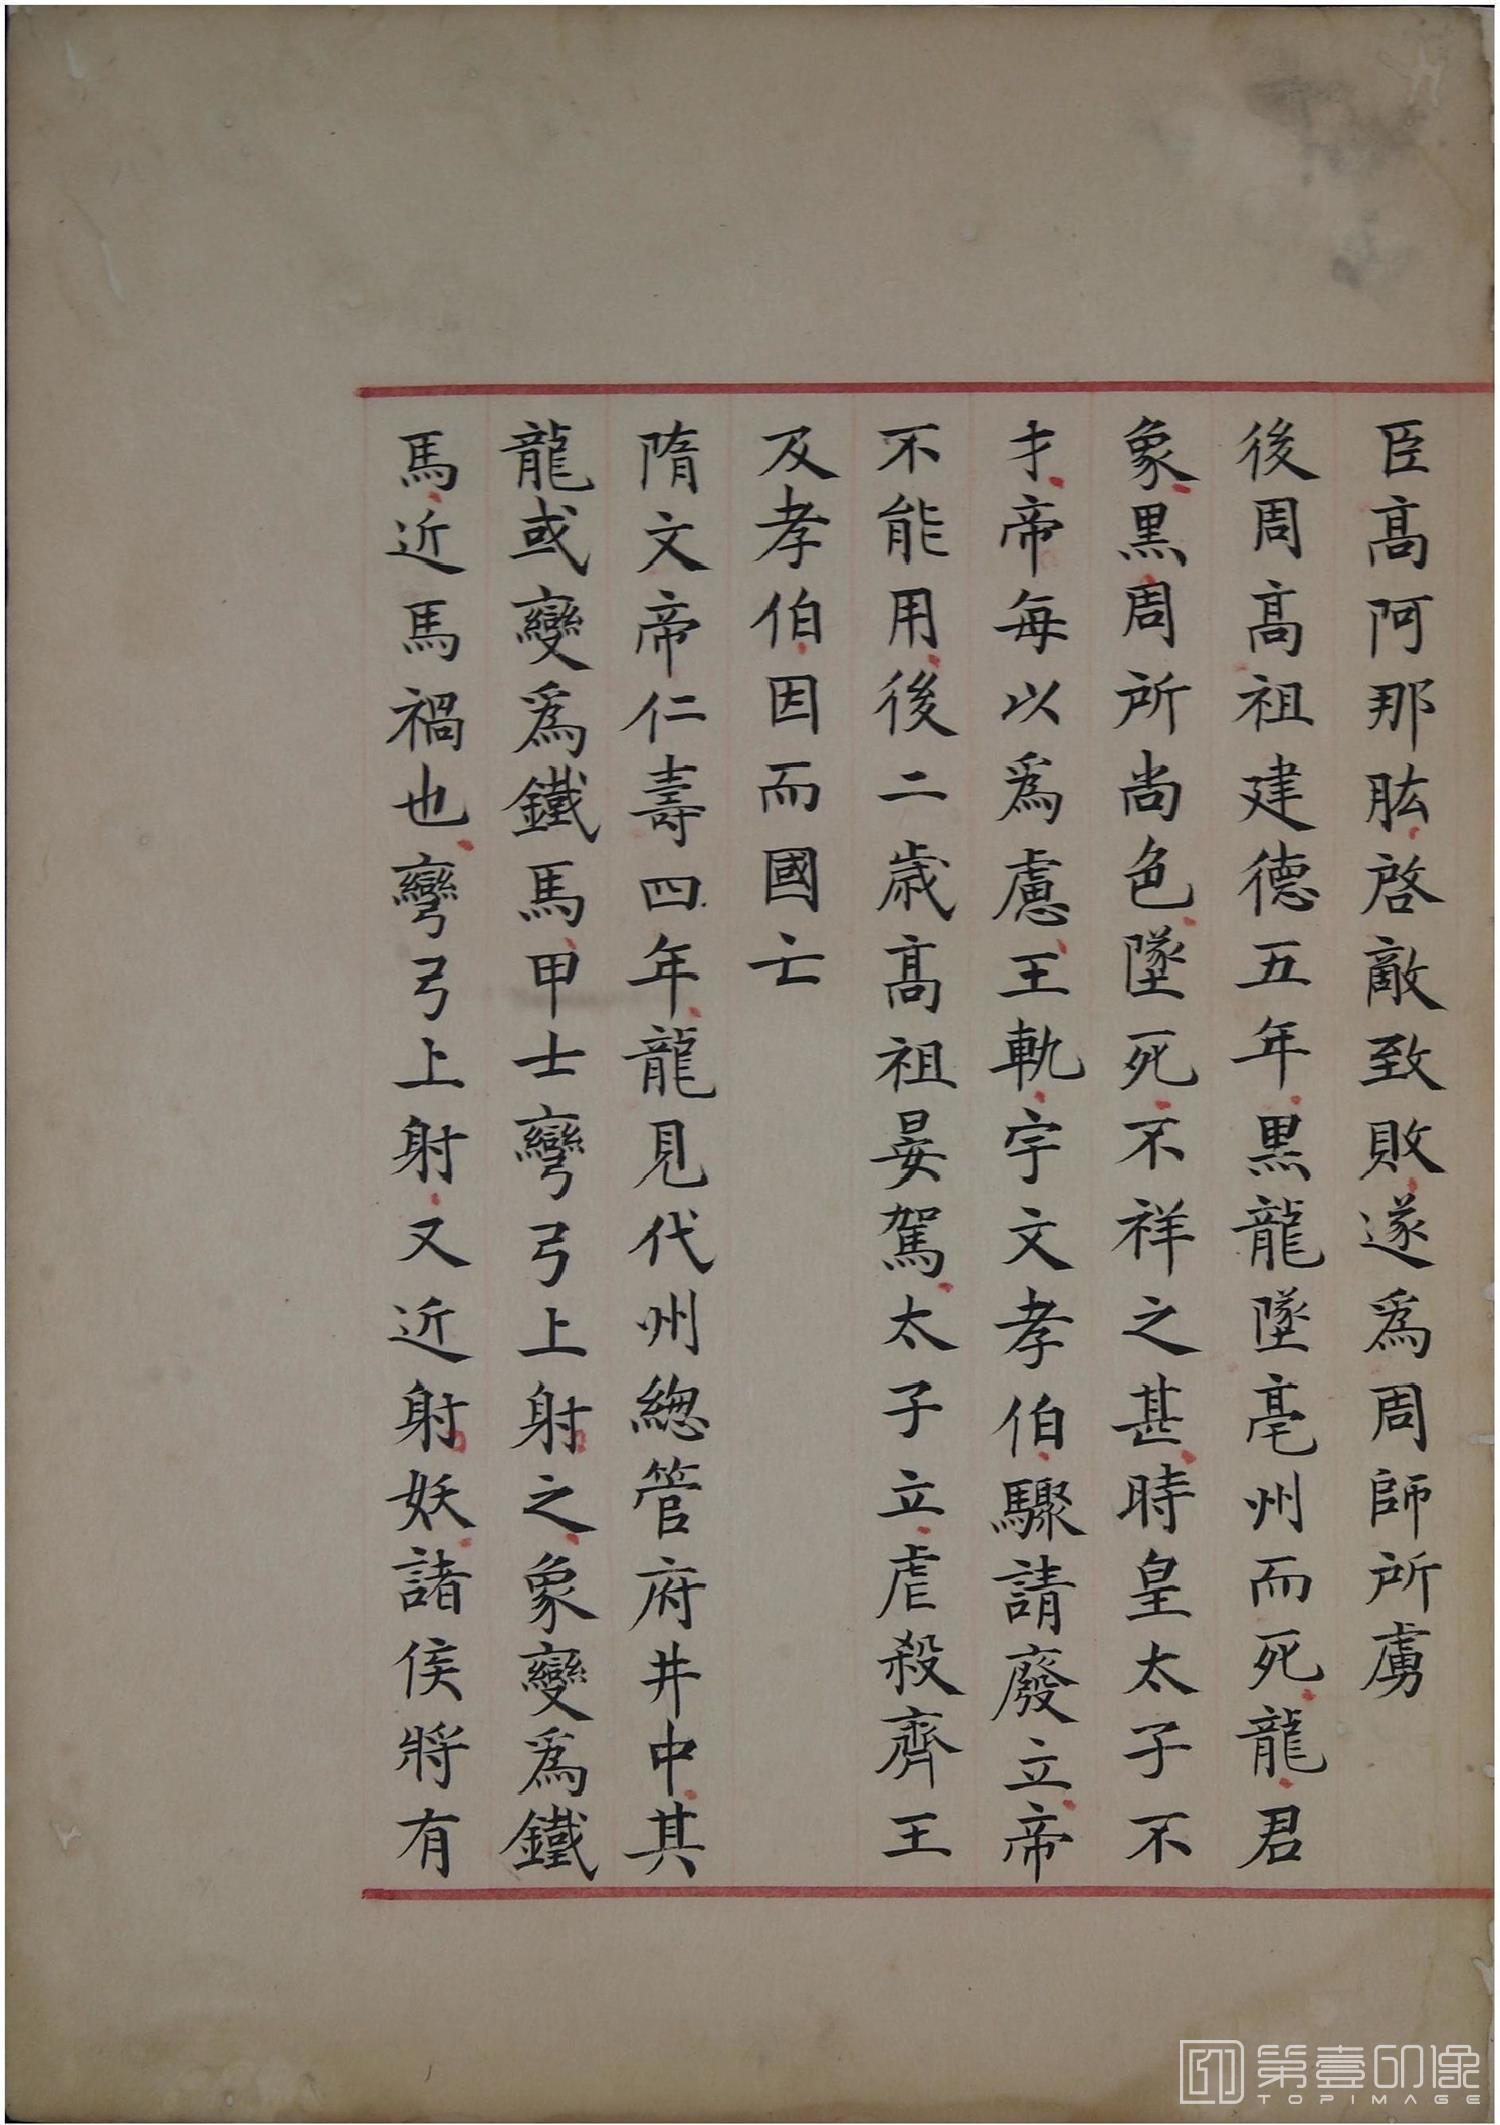 臣高阿那肱啓敵致敗遂爲周師所虜
後周高祖建德五年黒龍墜亳州而死龍君
象黒周所尚色墜死不祥之甚時皇太子不
才帝每以爲慮王軌宇文孝伯驟請廢立帝
不能用後二歲高祖晏駕太子立虐殺齊王
及孝伯因而國亡
隋文帝仁壽四年龍見代州緫管府井中其
龍或變爲鐵馬甲士彎弓上射之象變爲鐵
馬近馬禍也彎弓上射又近射妖諸侯將有
第壹印像
TOPIMAGE